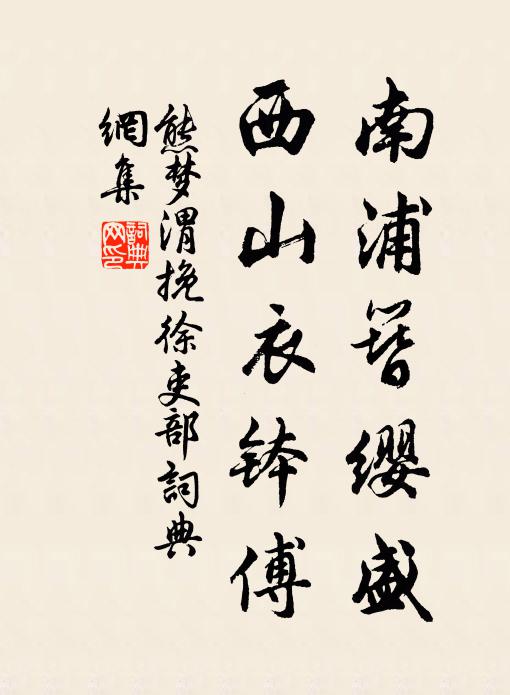 南浦簪纓盛
西山衣鉢傅
熊梦渭挽徐吏部詞典
網集
詞典網印